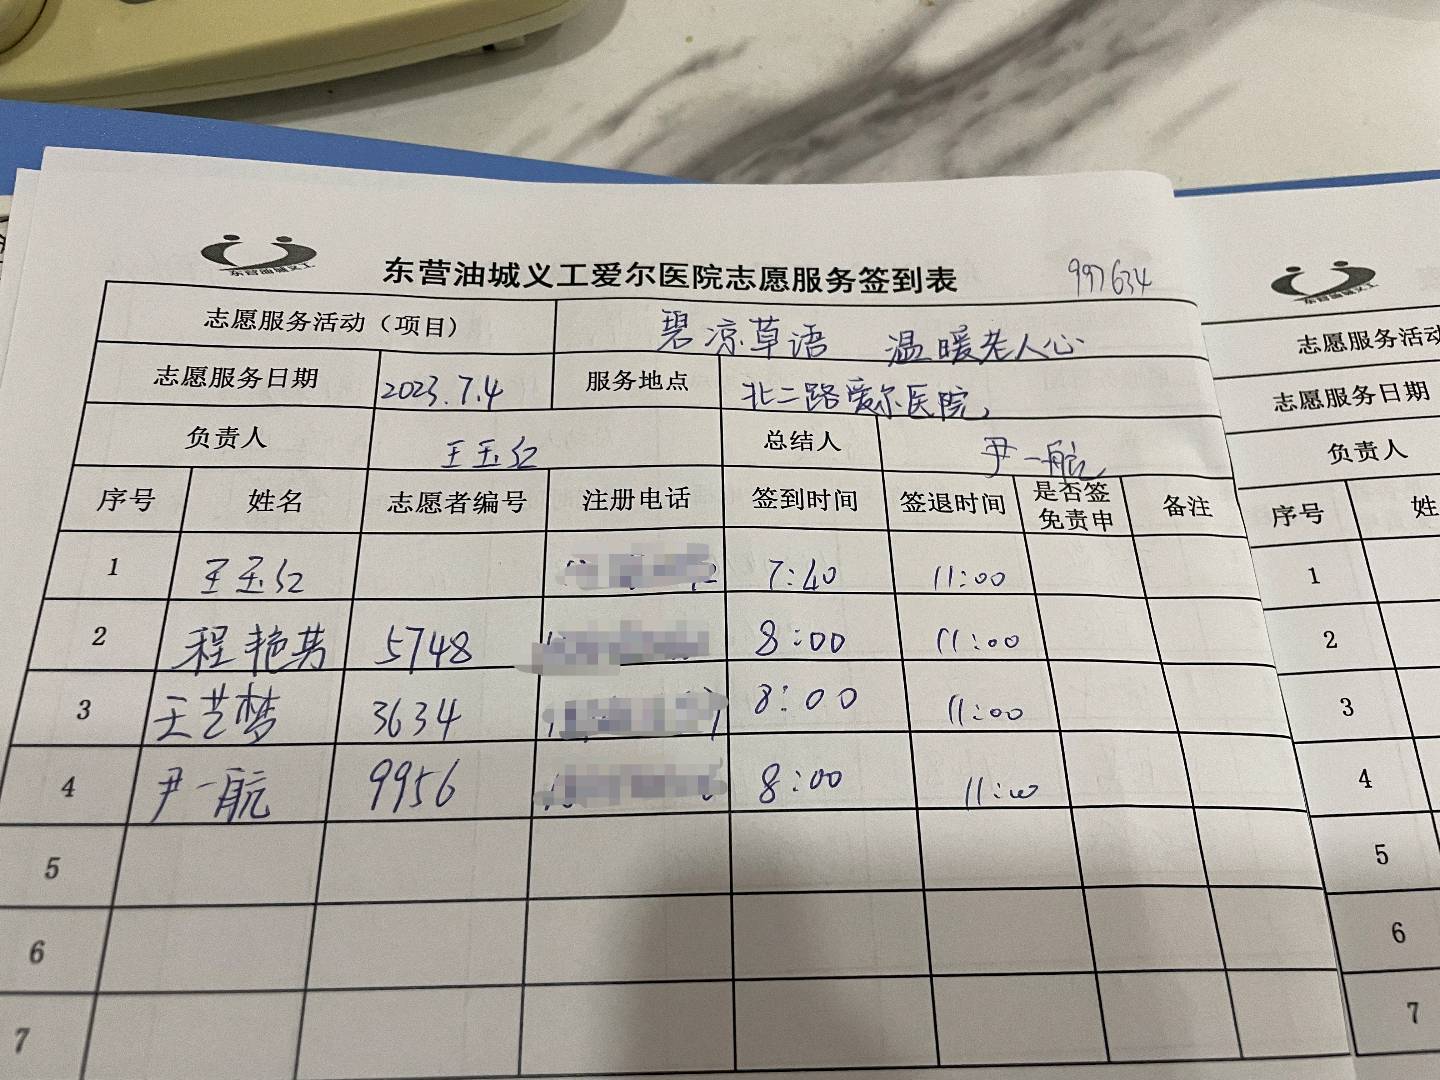 东营油城义工
东营油城义工爱尔医院志愿服务签到表 997634
志愿服务活动（项目） 碧凉草语 温暖老人心
志愿服务日期 2023.7.4 服务地点 北二路爱尔医院
负责人 王玉红 总结人 尹一航
序号 姓名 志愿者编号 注册电话 签到时间 签退时间 是否签免责申 备注
1 王玉红 7:40 11:00
2 程艳芳 5748 8:00 11:00
3 王艺梦 3634 8:00 11:00
4 尹一航 9956 8:00 11:00
5
6
7
东营油城义工
志愿服务活动
志愿服务日期
负责人
序号 姓
1
2
3
4
5
6
7